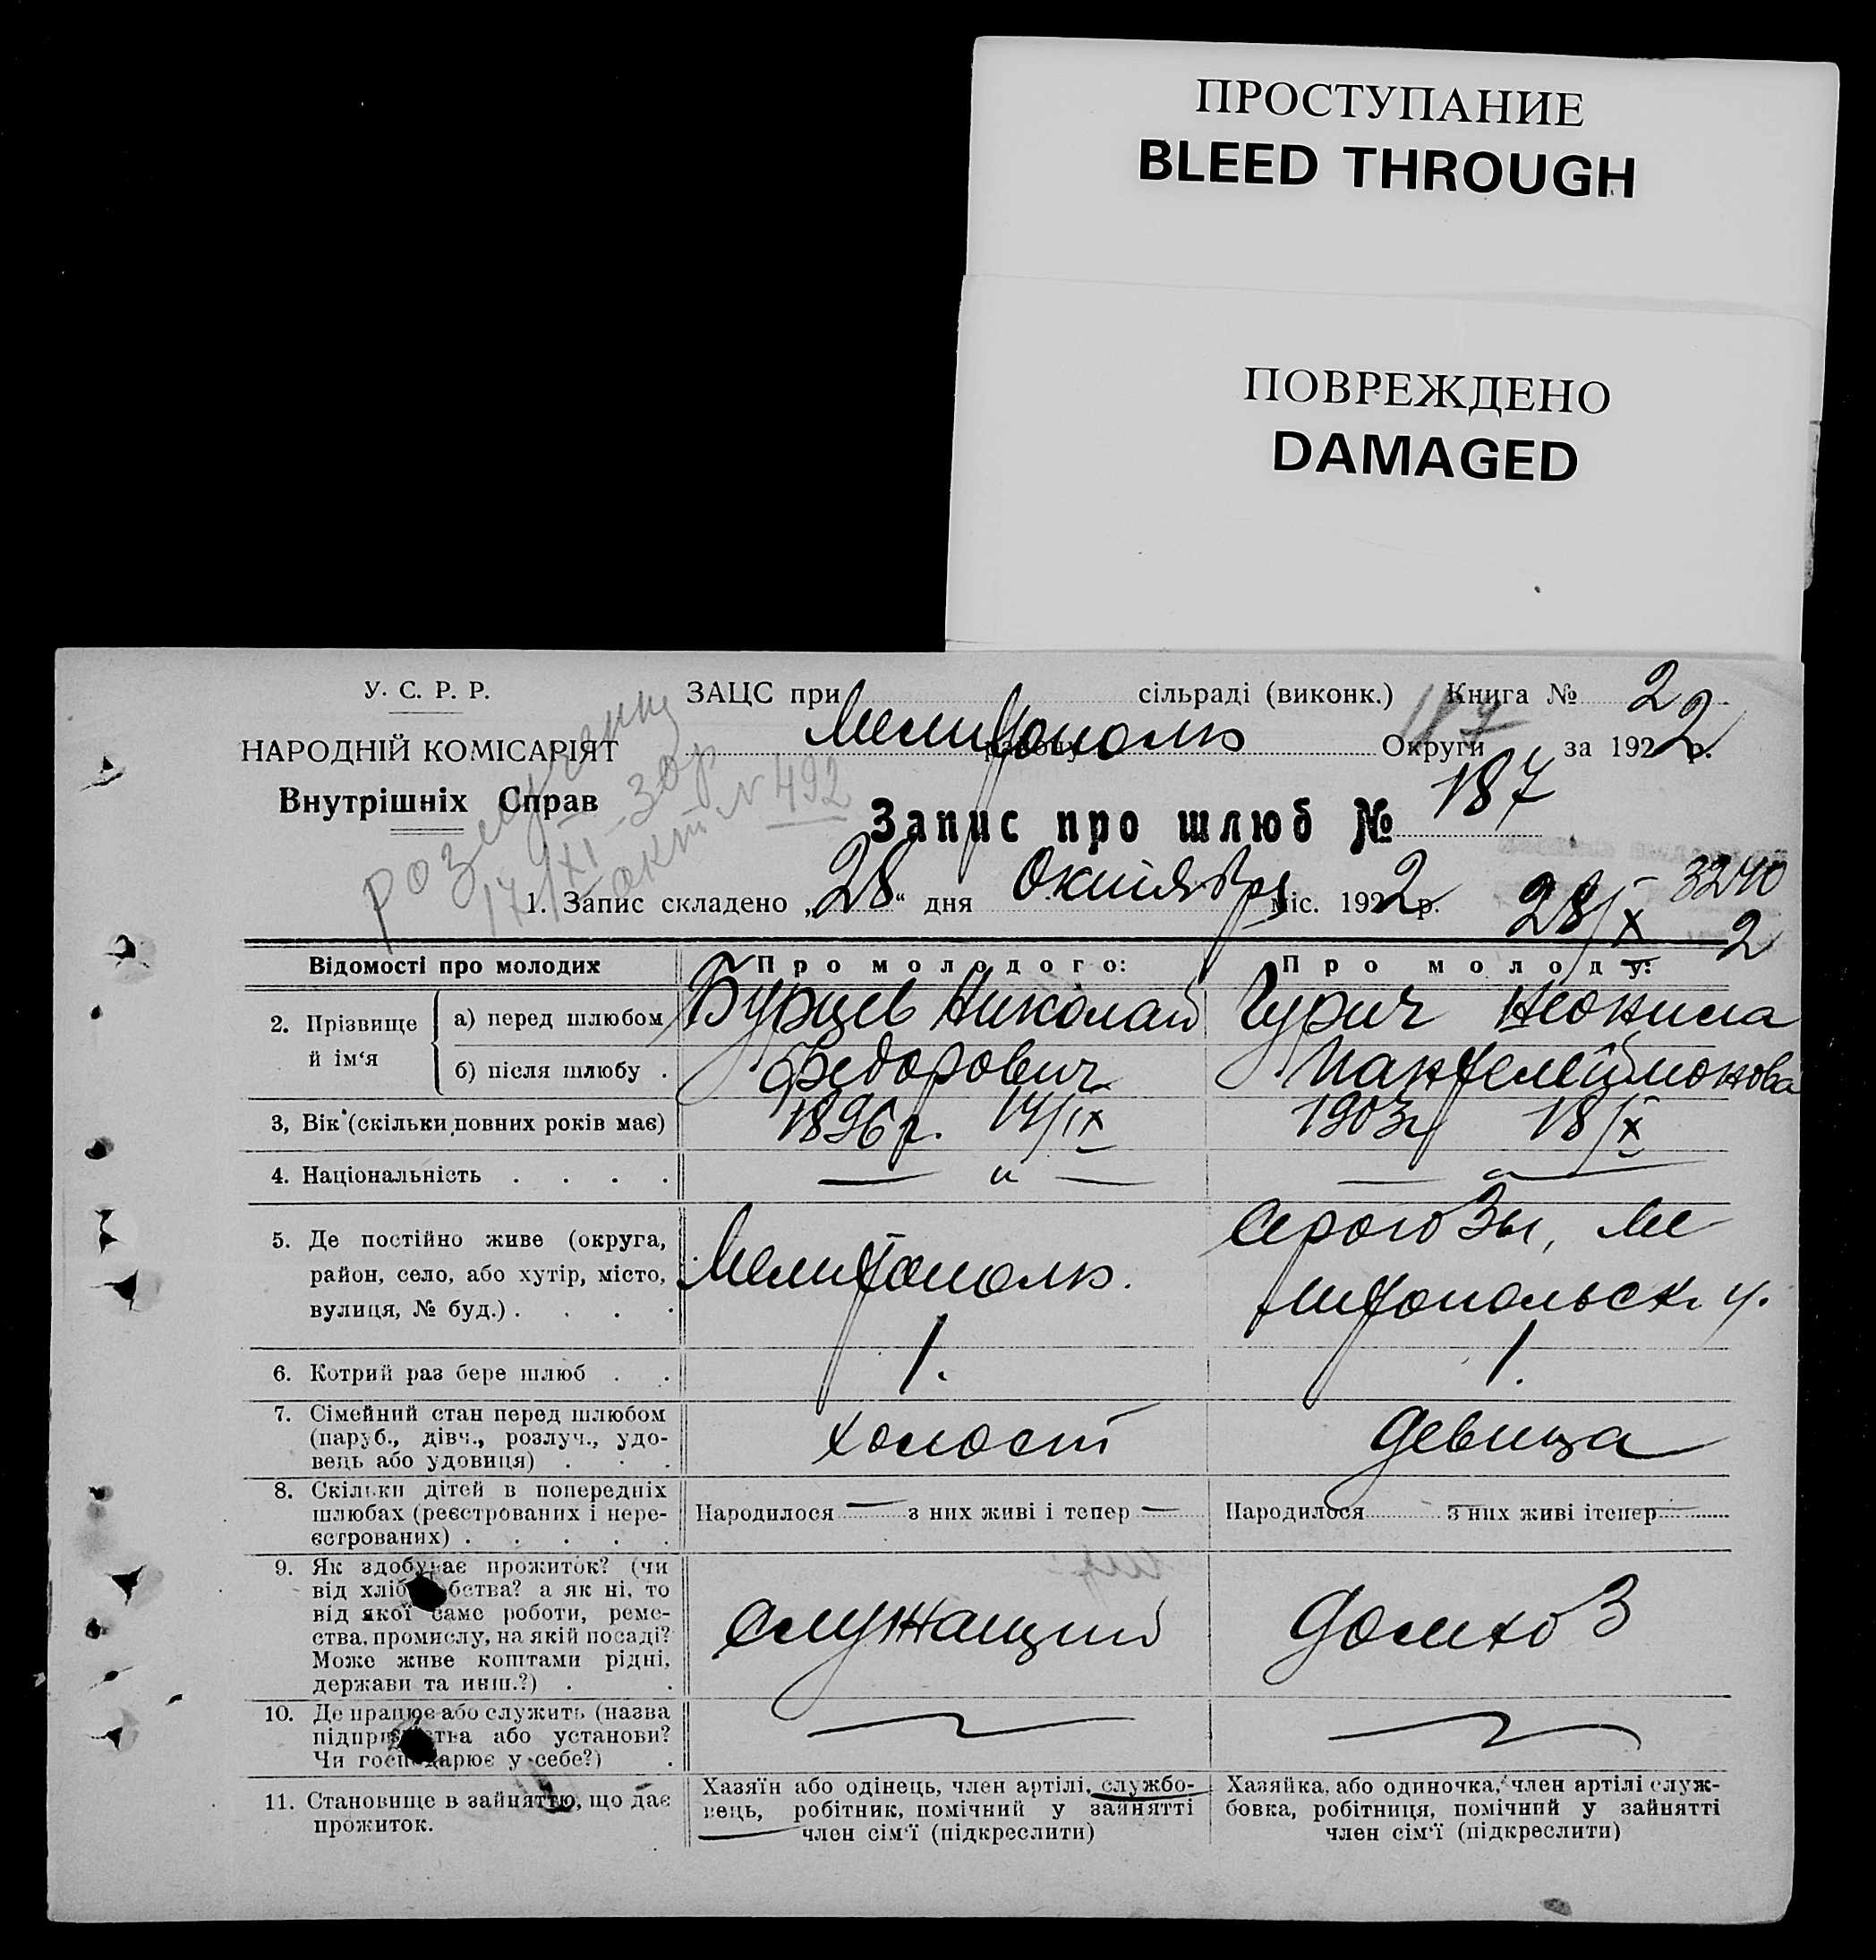 ПРОСТУПАНИЕ
BLEED THROUGH
ПОВРЕЖДЕНО
DAMAGED
У. С. Р. Р.
НАРОДНІЙ КОМІСАРІЯТ
Внутрішніх Справ
ЗАЦС при сільраді (виконк.) Книга № 2
Мелитополь району Округи за 1922 р.
187
Запис про шлюб № 187
17/XI акт N 492
1. Запис складено „28“ дня Октября міс. 1922 р.
28/X 2
3240
Відомості про молодих
Про молодого:
Про молоду:
2. Прізвище й ім‘я
а) перед шлюбом
Бурцев Николай
Гурич Неонила
б) після шлюбу .
Федорович
Пантелеймонова
3, Вік (скільки повних років має)
1896 г. 14/IX
1903 г 18/X
4. Національність . . . .
— и —
— —
5. Де постійно живе (округа,
район, село, або хутір, місто,
вулиця, № буд.) . . . .
Мелитополь.
Серогозы, Ме
литопольск. у.
6. Котрий раз бере шлюб . .
1.
1.
7. Сімейний стан перед шлюбом
(паруб., дівч., розлуч., удо-
вець або удовиця) . . .
холост
девица
8. Скільки дітей в попередніх
шлюбах (реєстрованих і нере-
єстрованих) . . . . .
Народилося — з них живі і тепер —
Народилося — з них живі ітепер —
9. Як здобуває прожиток? (чи
від хліб бства? а як ні, то
від якої саме роботи, реме-
ства, промислу, на якій посаді?
Може живе коштами рідні,
держави та инш.?) . .
служащий
домхоз
10. Де працює або служить (назва
підпри тва або установи?
Чи госп дарює у себе?) .
11. Становище в зайняттю, що дає
прожиток.
Хазяїн або одінець, член артілі, службо-
вець, робітник, помічний у зайнятті
член сім‘ї (підкреслити)
Хазяйка, або одиночка, член артілі служ-
бовка, робітниця, помічний у зайнятті
член сім‘ї (підкреслити)